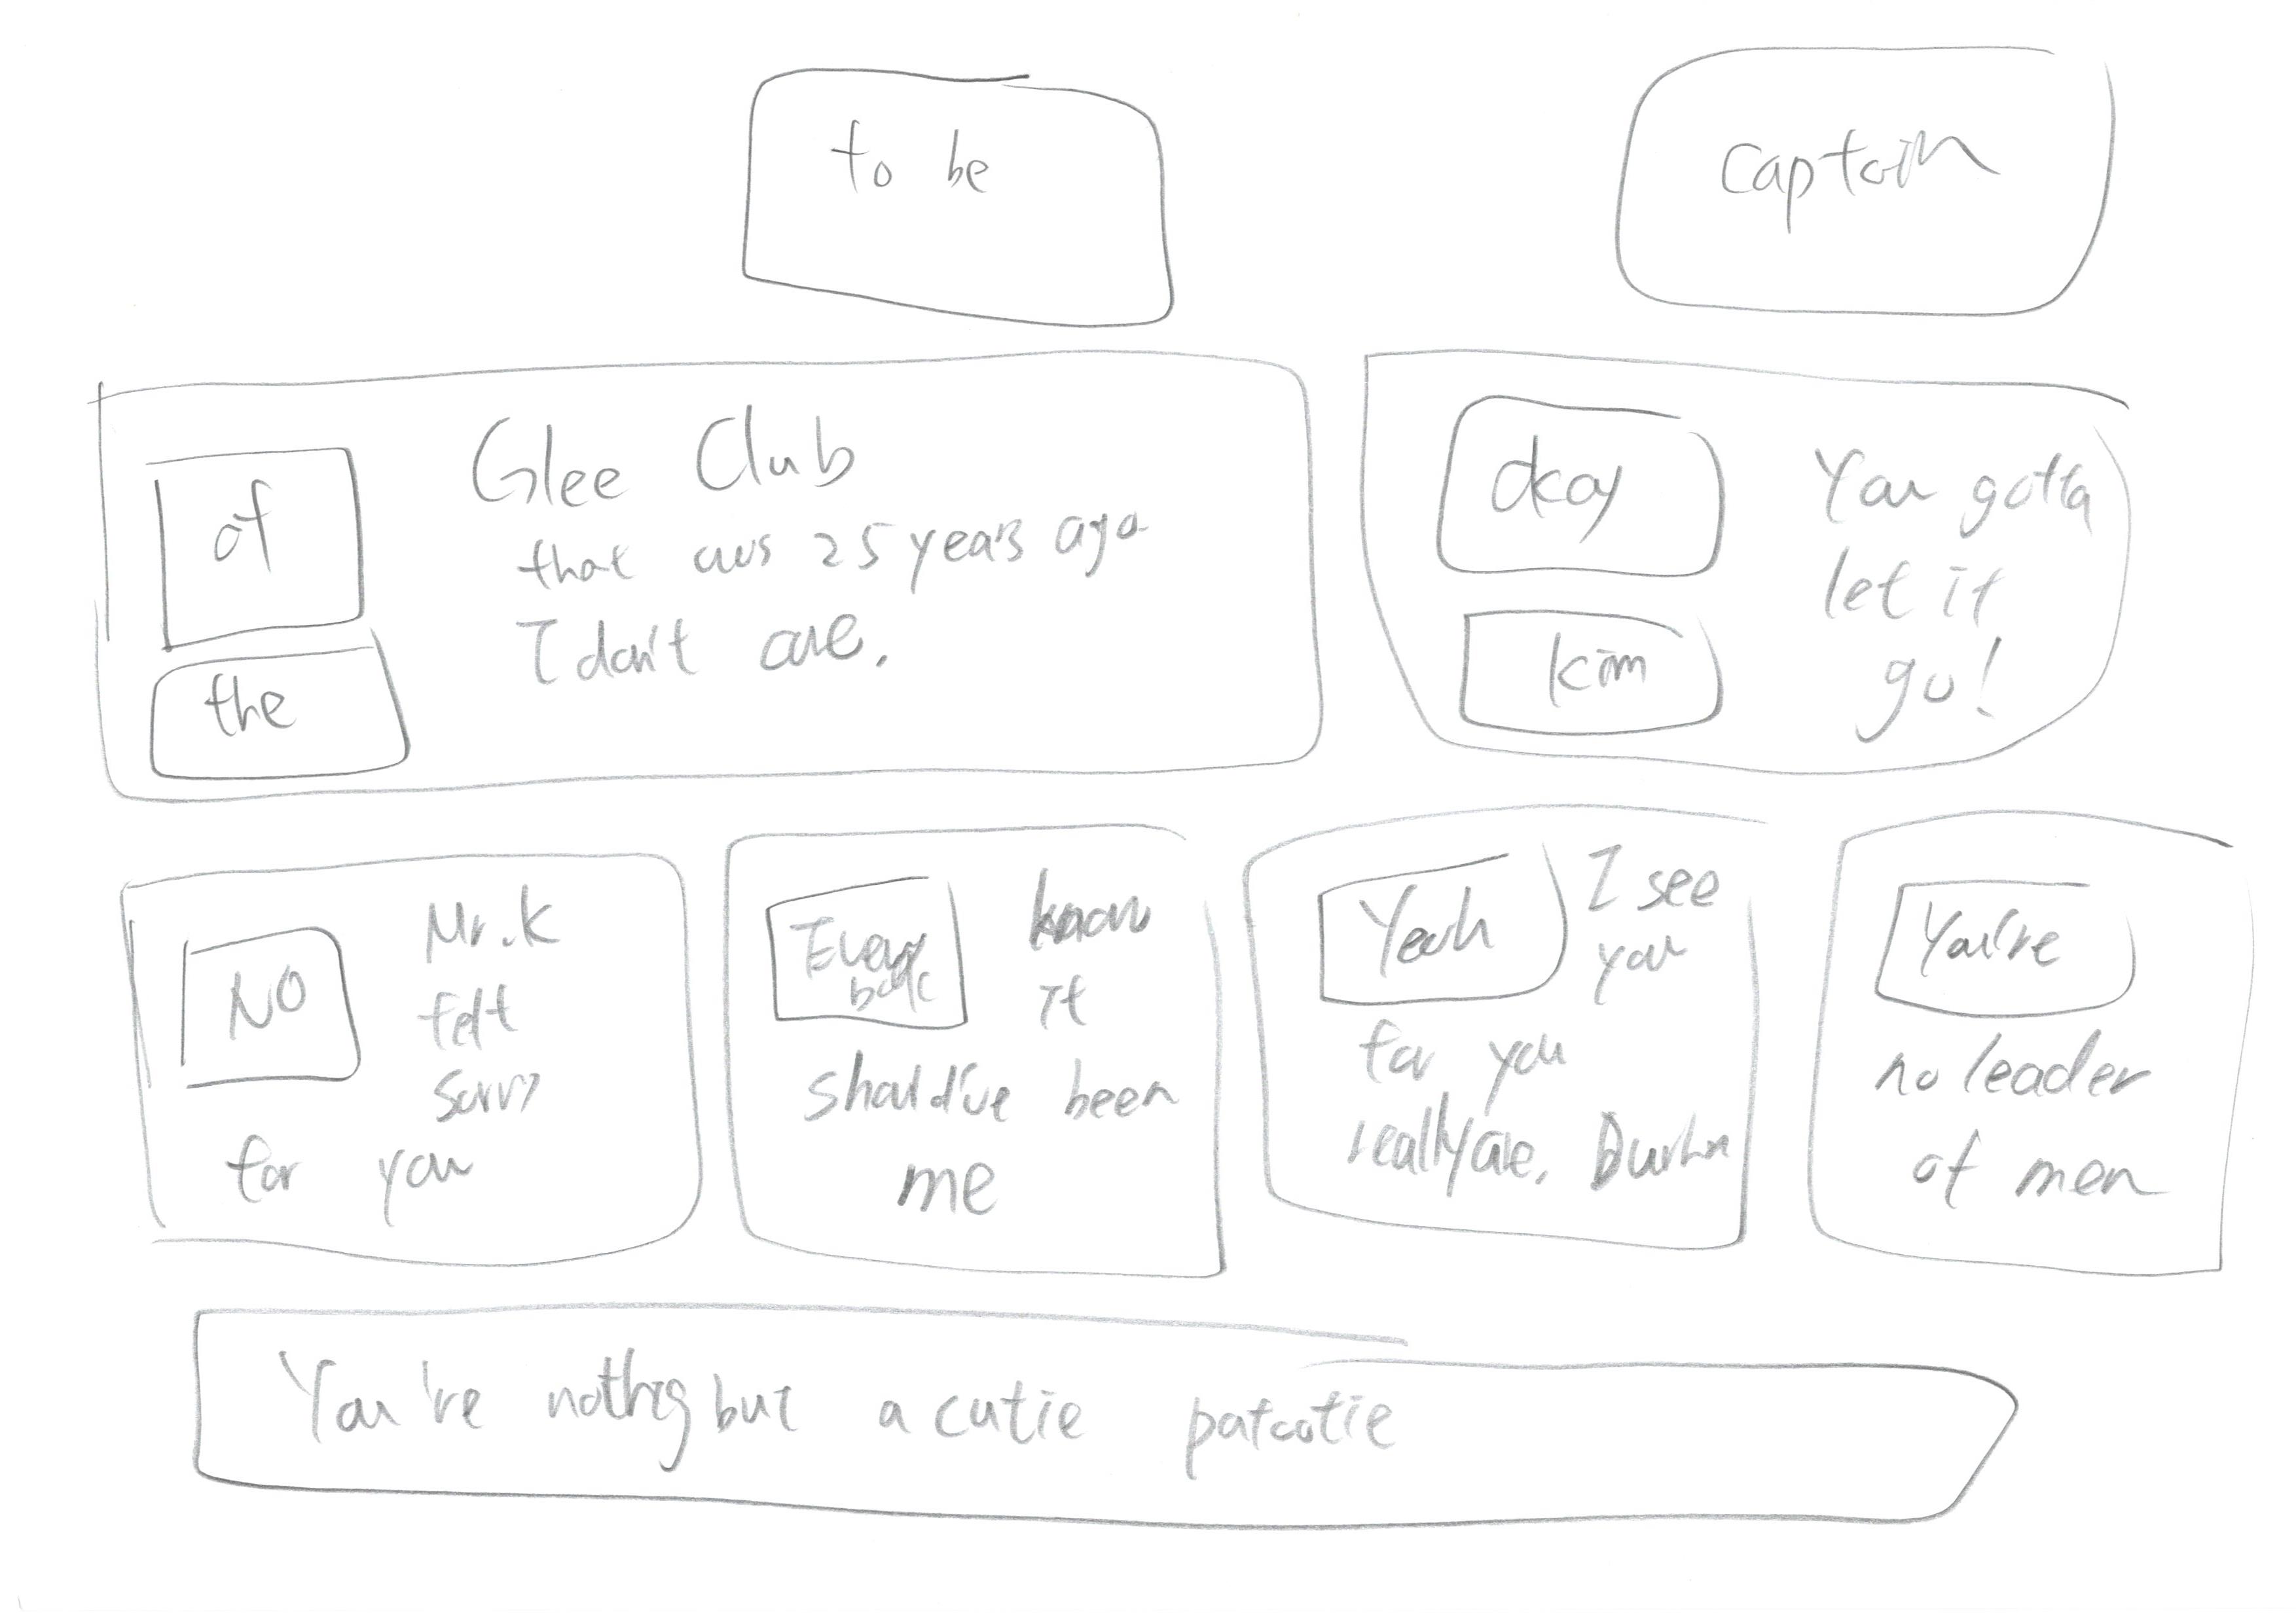 to be
Captain
of
the
Glee Club
that was 25 years ago
I don't care.
okay
kim
You gotta
let it
go!
NO
Mr.K
felt
sorry
for you
Every
know
it
should've been
me
Yeah
I see
you
for you
really are.
You're
no leader
of men
You're nothing but a cutie patootie